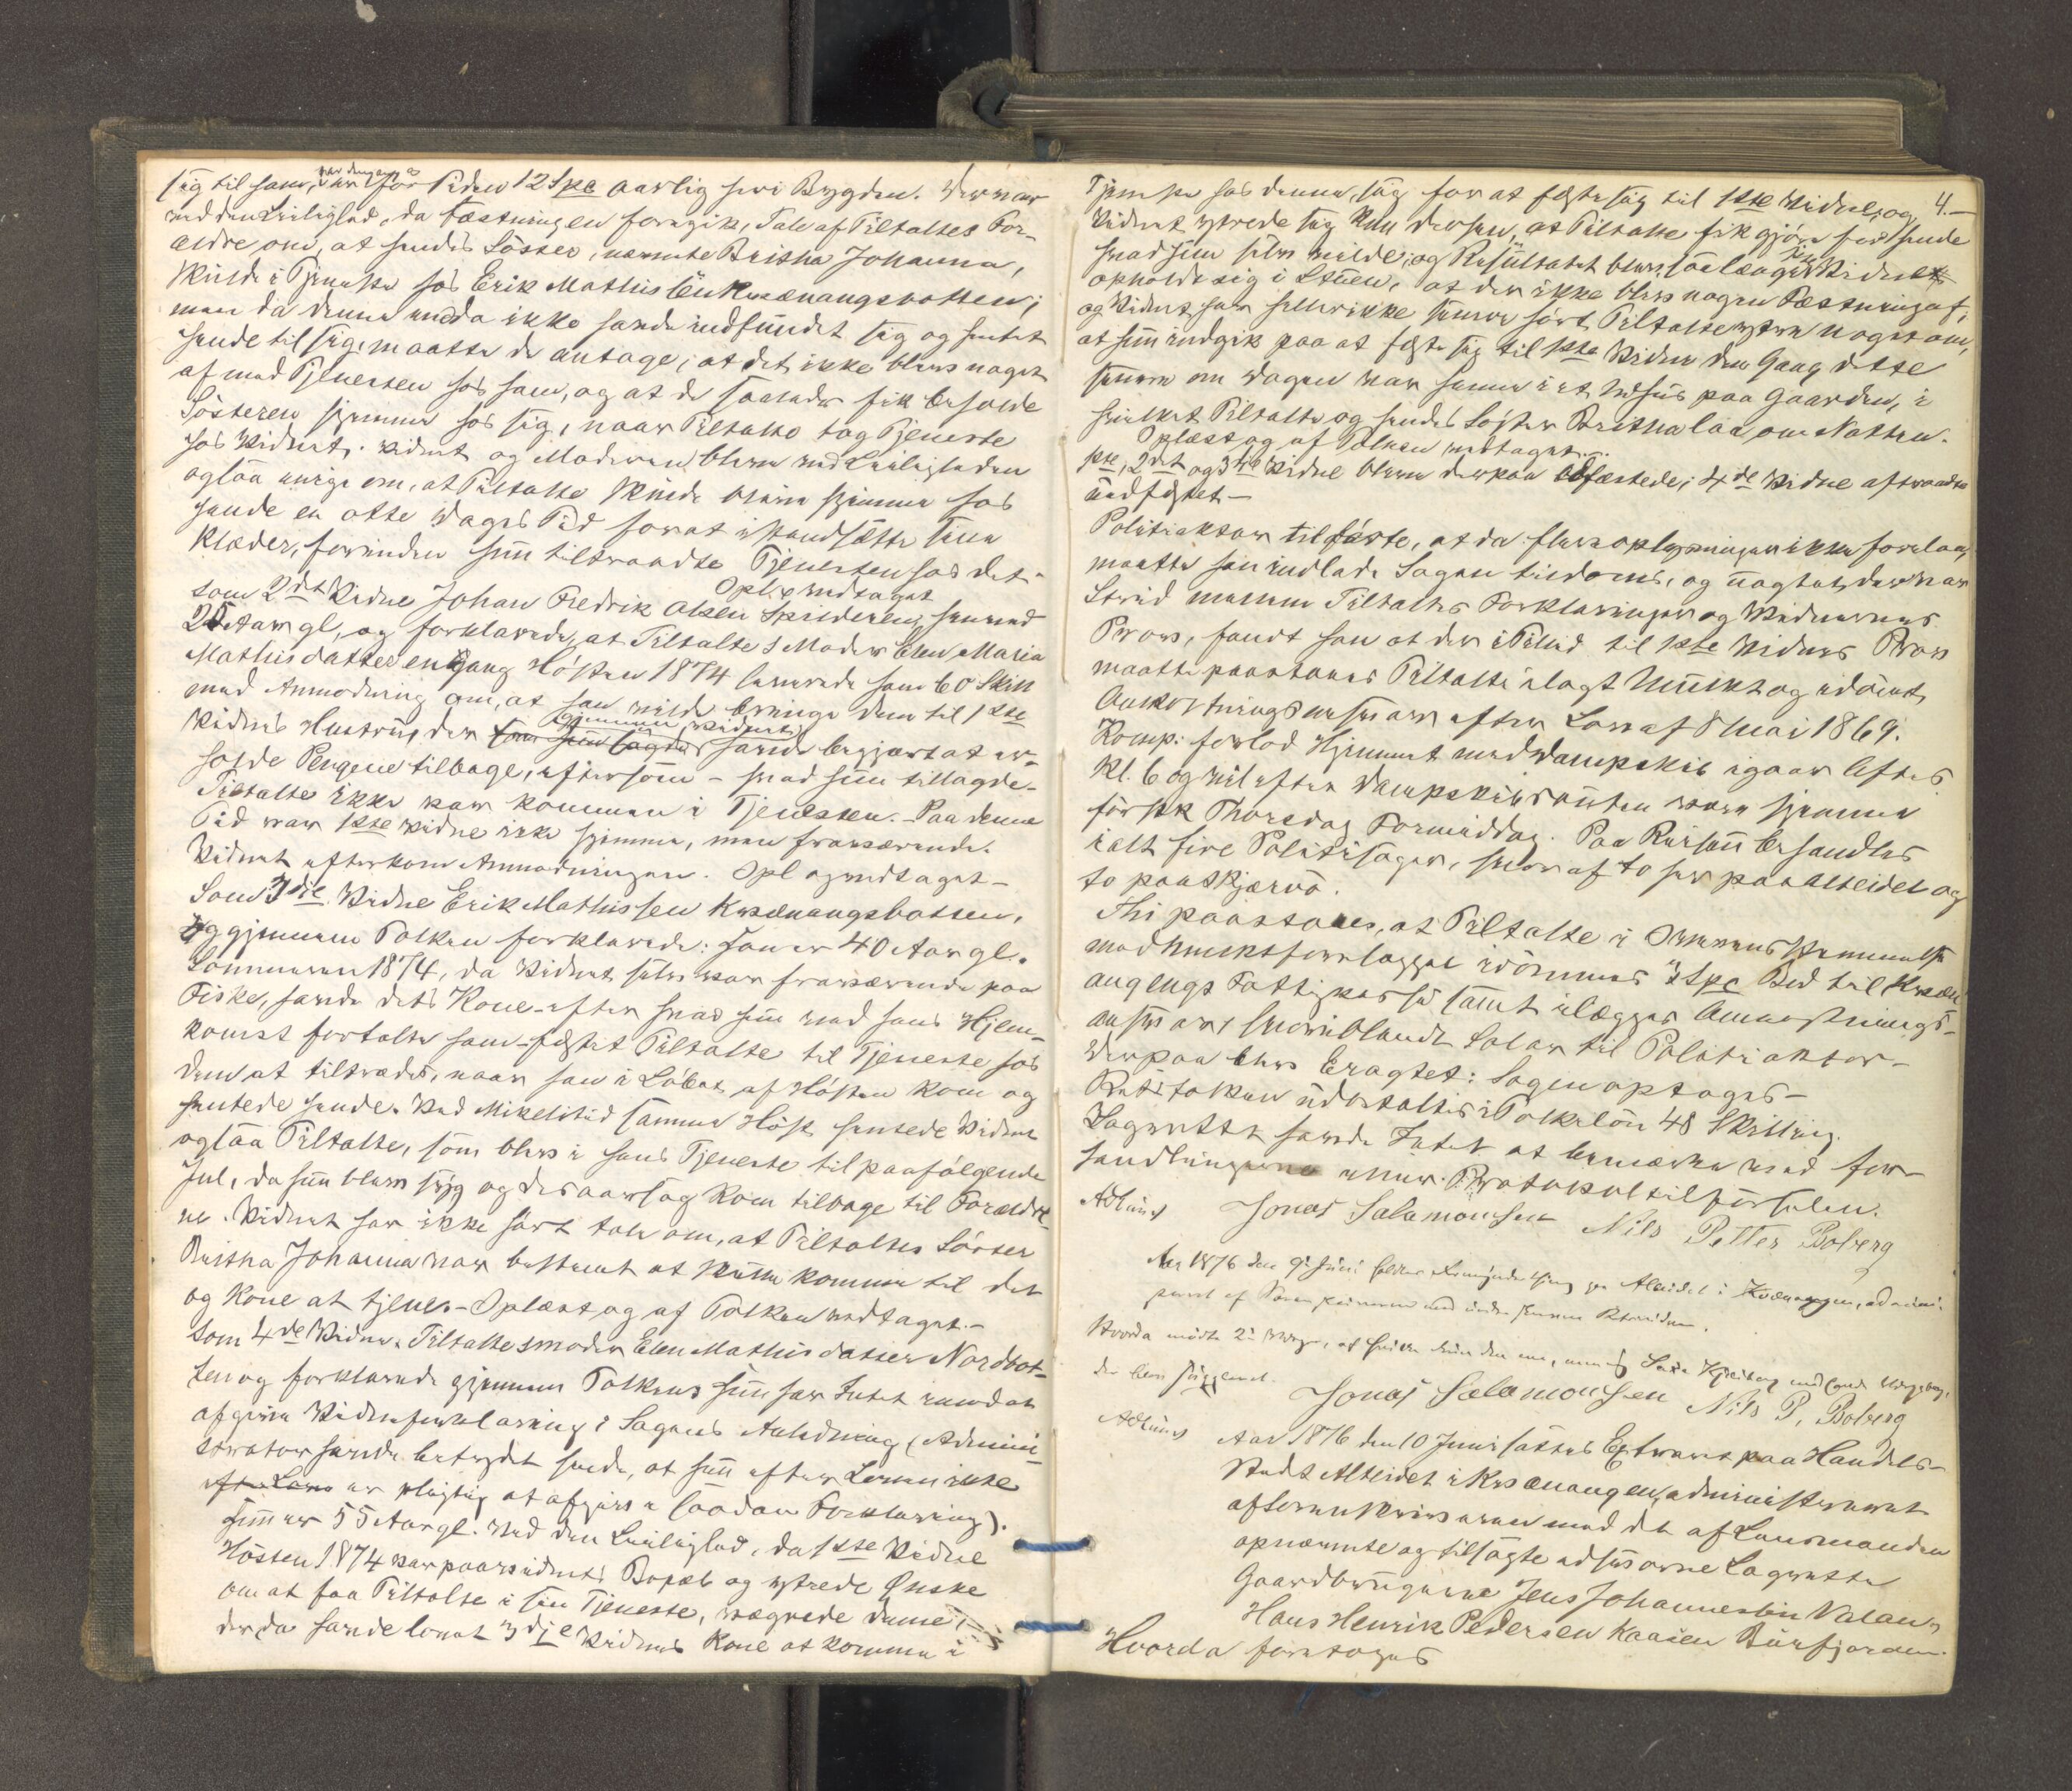 sig til ham, var dengang for Tiden 12 Spd aarlig her i Bygden. Der var
ved den Leilighed, da Fæstningen foregik, Tale af Tiltaltes For-
ældre om, at hendes Søster, nævnte Britha Johanna,
skulde i Tjeneste hos Erik Mathissen Kvænangsbotten;
men da denne endda ikke havde indfundet sig og hentet
hende til sig, maatte de antage, at det ikke blev noget
af med Tjenesten hos ham, og at de saaledes fik beholde
Søsteren hjemme hos sig, naar Tiltalte tog Tjeneste
hos Vidnet. Vidnet og Moderen bleve ved Leiligheden
ogsaa enige om, at Tiltalte skulde blive hjemme hos
hende en otte Dages Tid for at istandsætte sine
Klæder, forinden hun tiltraadte Tjenesten hos det.
Opl. og vedtaget
Som 2det Vidne Johan Fredrik Olsen Spilderen, henved
25 Aar gl, og forklarede, at Tiltaltes Moder Elen Maria
Mathisdatter engang Høsten 1874 leverede ham 60 Skill
med Anmodning om, at han vilde bringe dem til 1ste
Vidnes Hustru, der gjennem Vidnet havde begjært at er-
holde Pengene tilbage, eftersom – hvad hun tillagde –
Tiltalte ikke var kommen i Tjenesten. – Paa denne
Tid var 1ste Vidne ikke hjemme, men fraværende.
Vidnet efterkom Anmodningen. Opl og vedtaget –
Som 3die Vidne Erik Mathissen Kvænangsbotten,
og gjennem Tolken forklarede: Han er 40 Aar gl.
Sommeren 1874, da Vidnet selv var fraværende paa
Fiske, havde dets Kone – efter hvad hun ved hans Hjem-
komst fortalte ham – fæstet Tiltalte til Tjeneste hos
dem at tiltrædes, naar han i Løbet af Høsten kom og
hentede hende. Ved Mikelitid samme Høst hentede Vidnet
ogsaa Tiltalte, som blev i hans Tjeneste til paafølgende
Jul, da hun blev syg og desaarsag kom tilbage til Forældre-
ne. Vidnet har ikke hørt tale om, at Tiltaltes Søster
Britha Johanna var bestemt at skulle komme til det
og Kone at tjene. – Oplæst og af Tolken vedtaget. –
Som 4de Vidne Tiltaltes moder Elen Mathisdatter Nordbot-
ten og forklarede gjennem Tolken: hun har Intet imod at
afgive Vidneforklaring i Sagens Anledning (Admini-
strator havde betydet hende, at hun efter Loven ikke
er pligtig at afgive saadan Forklaring).
Hun er 55 Aar gl. Ved den Leilighed, da 1ste Vidne
Høsten 1874 var paa Vidnets Bopæl og ytrede Ønske
om at faa Tiltalte i sin Tjeneste, vægrede denne sig,
der da havde lovet 3die Vidnes Kone at komme i
4.–
Tjeneste hos denne, sig for at fæste sig til 1ste Vidne, og
Vidnet ytrede sig kun derhen, at Tiltalte fik gjøre
hvad hun selv vilde; og Resultatet blev, saalænge Vidnet
opholdt sig i Stuen, at der ikke blev nogen Fæstning af;
og Vidnet har heller ikke senere hørt Tiltalte ytre noget om,
at hun indgik paa at fæste sig til 1ste Vidne den Gang dette
senere om Dagen var inde i et Udhus paa Gaarden, i
hvilket Tiltalte og hendes Søster Britha laa om Natten.
Oplæst og af Tolken vedtaget.
1ste, 2det og 3die Vidne bleve derpaa edfæstede; 4de Vidne aftraadte
uedfæstet –
Politiaktor tilførte, at da flere oplysninger ikke forelaa,
maatte han indlade Sagen til doms, og uagtet der var
Strid mellem Tiltaltes Forklaringer og Vidnernes
Prov, fandt han at der i Tillid til 1ste Vidnes Prov
maatte paastaaes Tiltalte ilagt Mulkt og idømt
Omkostningsansvar efter Lov af 8 Mai 1869.
Komp. forlod Hjemmet med Dampskib igaar Aftes
Kl. 6 og vil efter Dampskibsruten være hjemme
først Thorsdag Formiddag. Paa Reisen behandles
ialt fire Politisager, hvoraf to her paa Alteidet og
to paa Skjærvø.
Thi paastaaes, at Tiltalte i Overensstemmelse
med Mulktsforelægget idømmes 3 Spd Bod til Kvæn-
angens Fattigkasse samt ilægges Omkostnings-
ansvar, hvoriblandt Salær til Politiaktor –
Derpaa blev Eragtet: Sagen optages –
Retstolken udbetaltes i Tolkeløn 48 Skilling.
Lagrettet havde Intet at bemærke ved For-
handlingerne eller Protokoltilførselen.
Jonas Salamonsen Nils Petter Boberg
Aar 1876 den 9 Juni holdtes paa Alteidet i Kvænangen, admini-
streret af Sorenskriveren med undertegnede Retsvidner.
Hvorda mødte
Jonas Salamonsen Nils P, Boberg
Aar 1876 den 10 Juni sattes Extraret paa Handels-
stedet Alteidet i Kvænangen, administreret
af Sorenskriveren med de af Lensmanden
opnævnte og tilsagte edsvorne Lagrette
Gaardbrugerne Jens Johannessen Valan,
Hans Henrik Pedersen Kaasen Burfjorden.
Hvorda foretoges